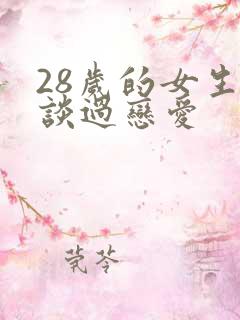 28歲的女生
談過戀愛
芫苓